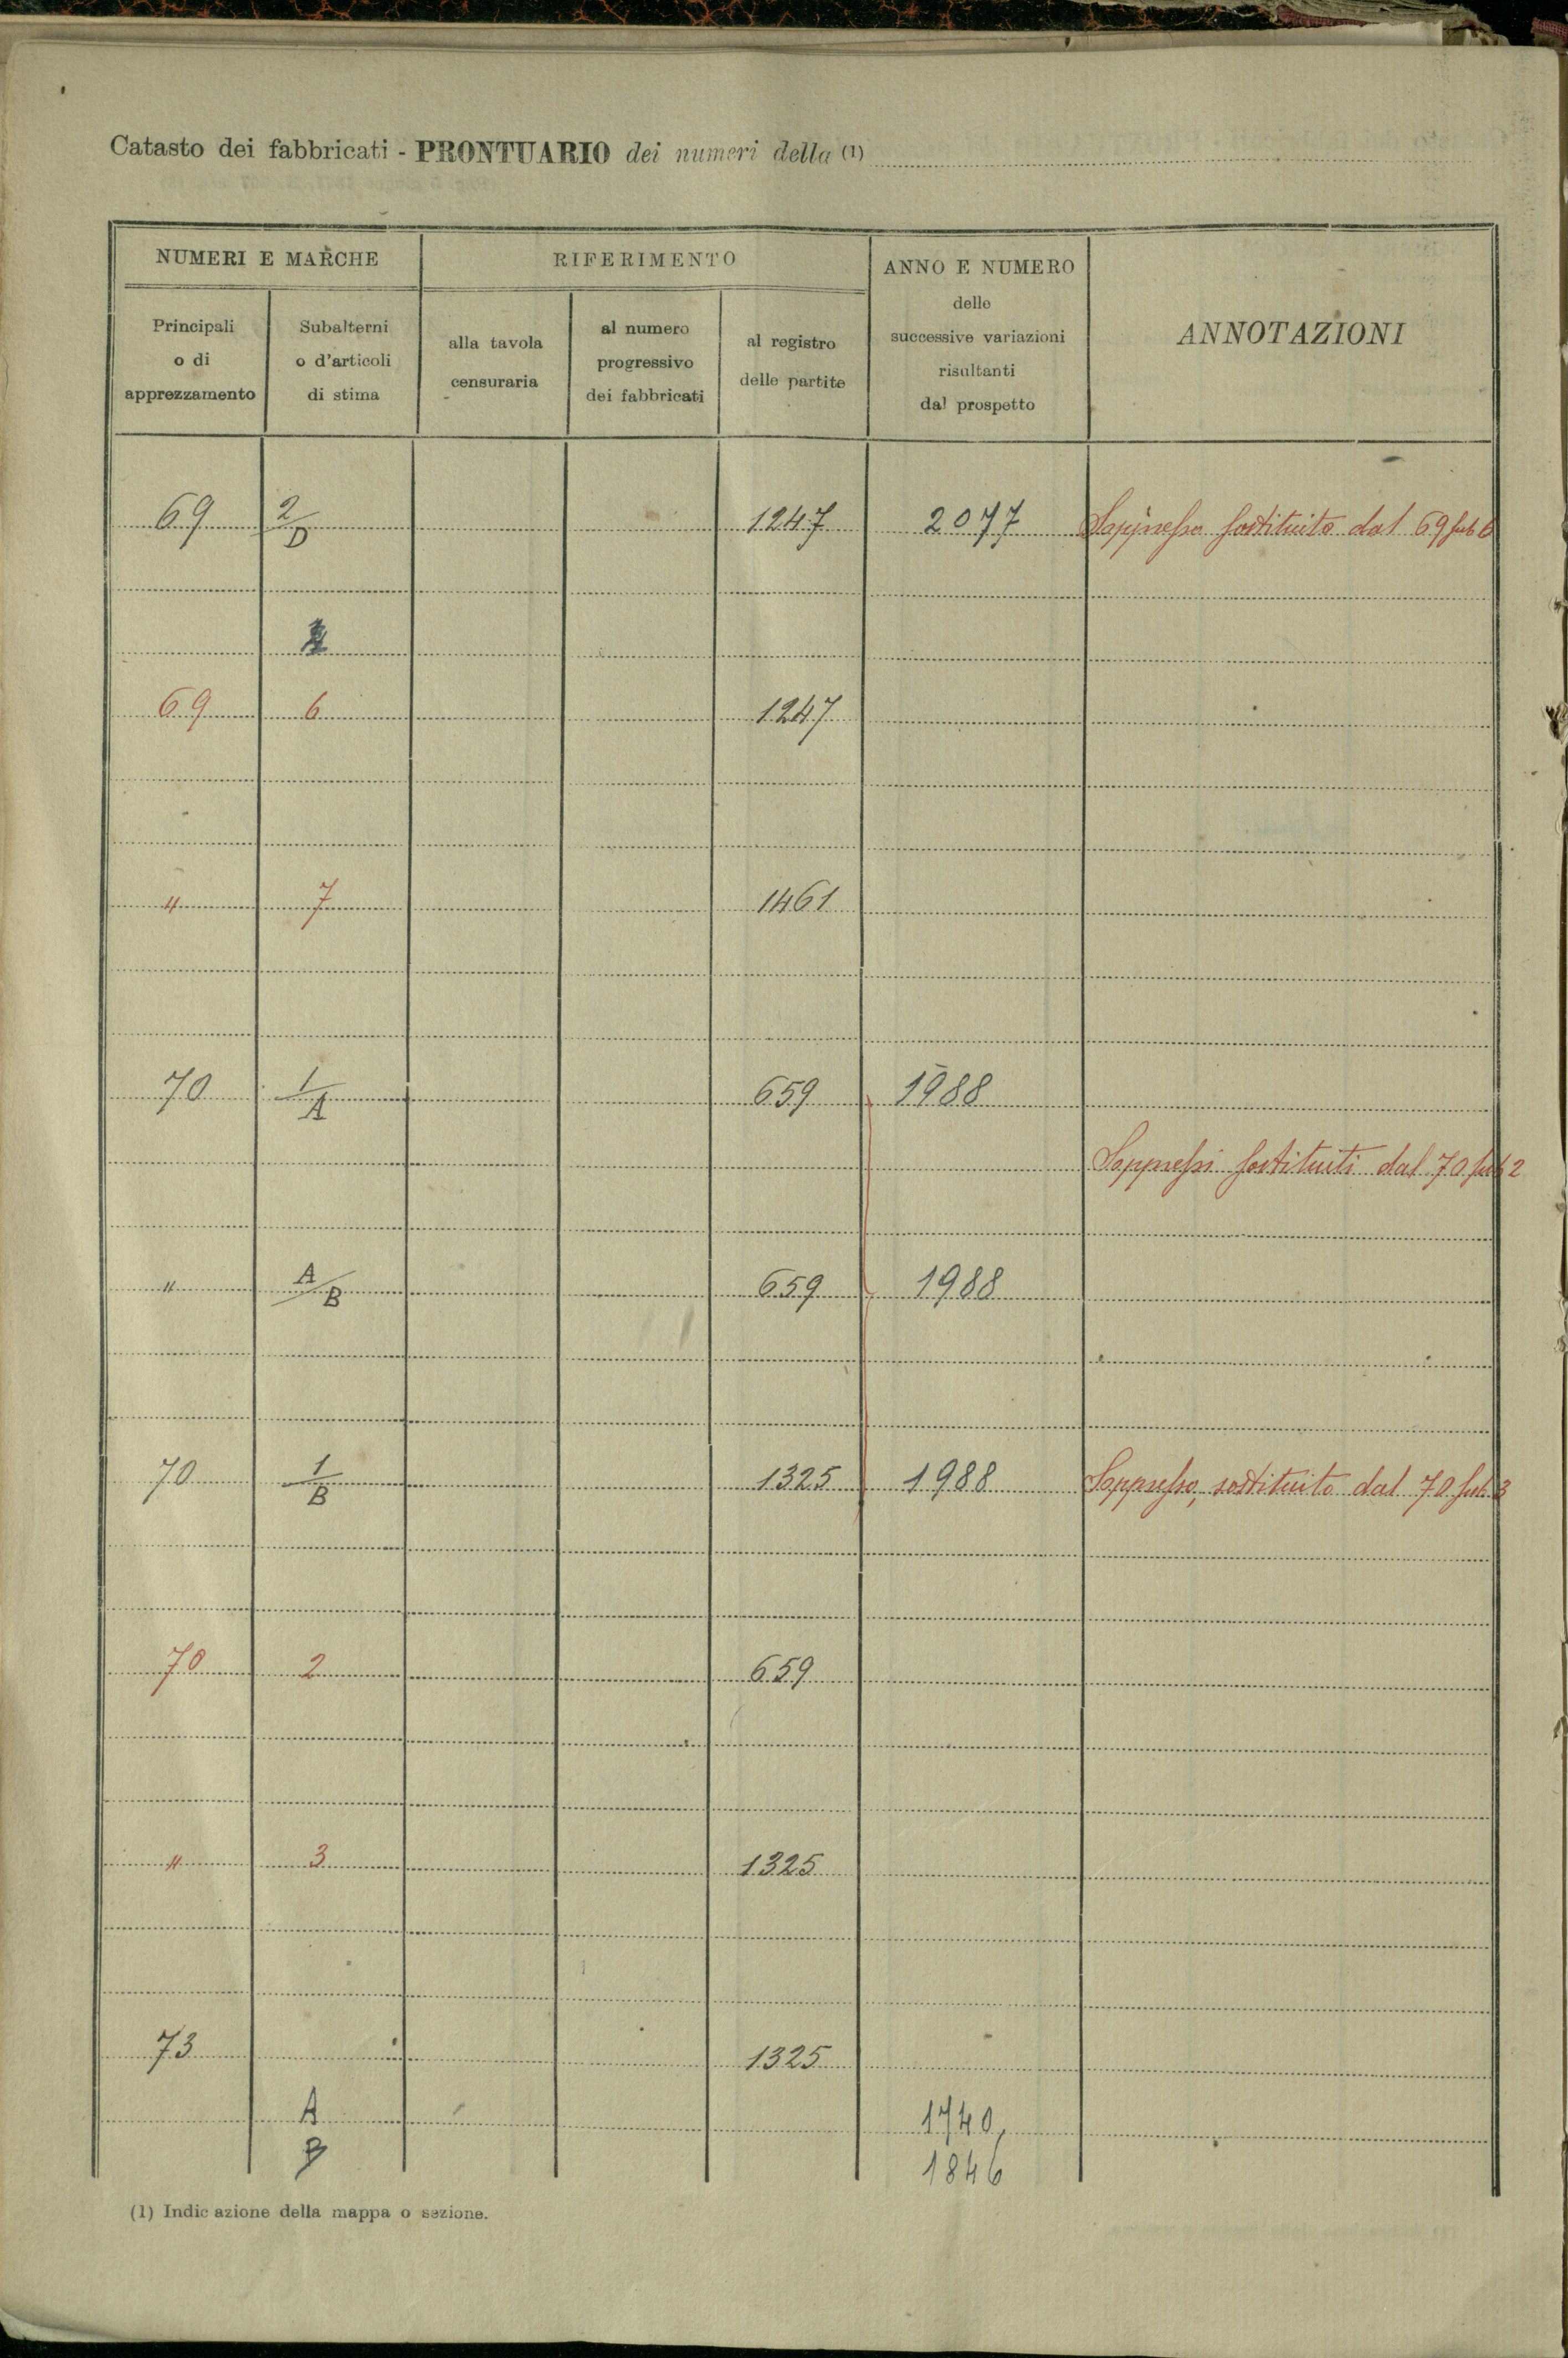 Catasto dei fabbricati - PRONTUARIO dei numeri della (1)
NUMERI E MARCHE
RIFERIMENTO
ANNO E NUMERO
delle
successive variazioni
risultanti
dal prospetto
ANNOTAZIONI
Principali
o di
apprezzamento
Subalterni
o d'articoli
di stima
alla tavola
censuraria
al numero
progressivo
dei fabbricati
al registro
delle partite
69 2/D 1247 2077 Soppresso sostituito dal 69 sub 6
69 6 1247
" 7 1461
70 1/A 659 1988
Soppressi sostituiti dal 70 sub 2
" A/B 659 1988
70 1/B 1325 1988 Soppresso, sostituito dal 70 sub 3
70 2 659
" 3 1325
73 1325
A 1740,
B 1846
(1) Indicazione della mappa o sezione.